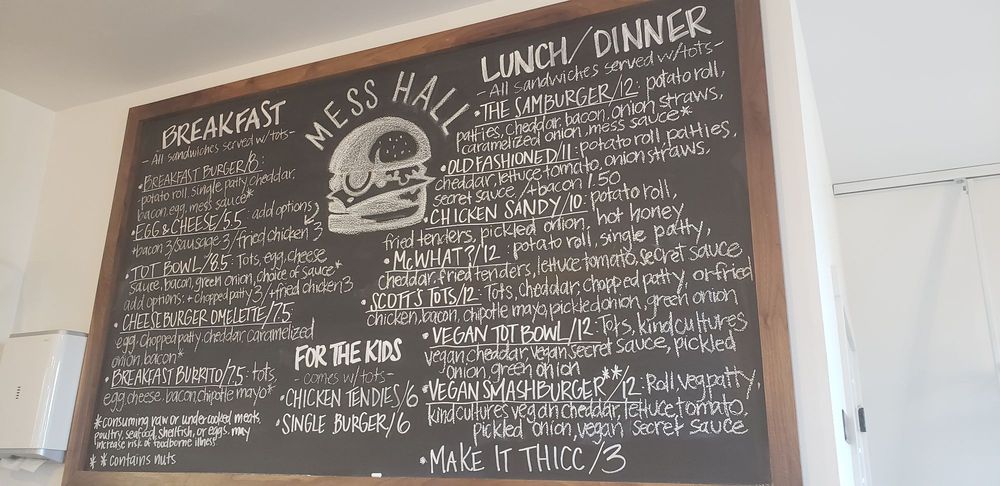 MESS HALL
BREAKFAST
- All sandwiches served w/tots -
• BREAKFAST BURGER/8:
potato roll, single patty, cheddar,
bacon, egg, mess sauce*
• EGG & CHEESE/5.5: add options
+ bacon 3/sausage 3/fried chicken 3
• TOT BOWL/8.5: Tots, egg, cheese
sauce, bacon, green onion, choice of sauce*
add options: + chopped patty 3/ +fried chicken 3
• CHEESEBURGER OMELETTE/7.5:
egg, chopped patty, cheddar, caramelized
onion, bacon*
• BREAKFAST BURRITO/7.5: tots,
egg, cheese, bacon, chipotle mayo*
*consuming raw or undercooked meats,
poultry, seafood, shellfish, or eggs, may
increase risk of foodborne illness
** contains nuts
FOR THE KIDS
- comes w/tots -
• CHICKEN TENDIES/6
• SINGLE BURGER/6
LUNCH/DINNER
- All sandwiches served w/tots -
• THE SAMBURGER/12: potato roll,
patties, cheddar, bacon, onion straws,
caramelized onion, mess sauce*
• OLD FASHIONED/11: potato roll, patties,
cheddar, lettuce, tomato, onion straws,
secret sauce /+bacon 1.50
• CHICKEN SANDY/10: potato roll,
fried tenders, pickled onion, hot honey
• McWHAT?/12: potato roll, single patty,
cheddar, fried tenders, lettuce, tomato, secret sauce
• SCOTT'S TOTS/12: Tots, cheddar, chopped patty, or fried
chicken, bacon, chipotle mayo, pickled onion, green onion
• VEGAN TOT BOWL/12: Tots, kind cultures
vegan cheddar, vegan secret sauce, pickled
onion, green onion
• VEGAN SMASHBURGER**/12: Roll, veg patty,
kind cultures vegan cheddar, lettuce, tomato,
pickled onion, vegan secret sauce
• MAKE IT THICC/3